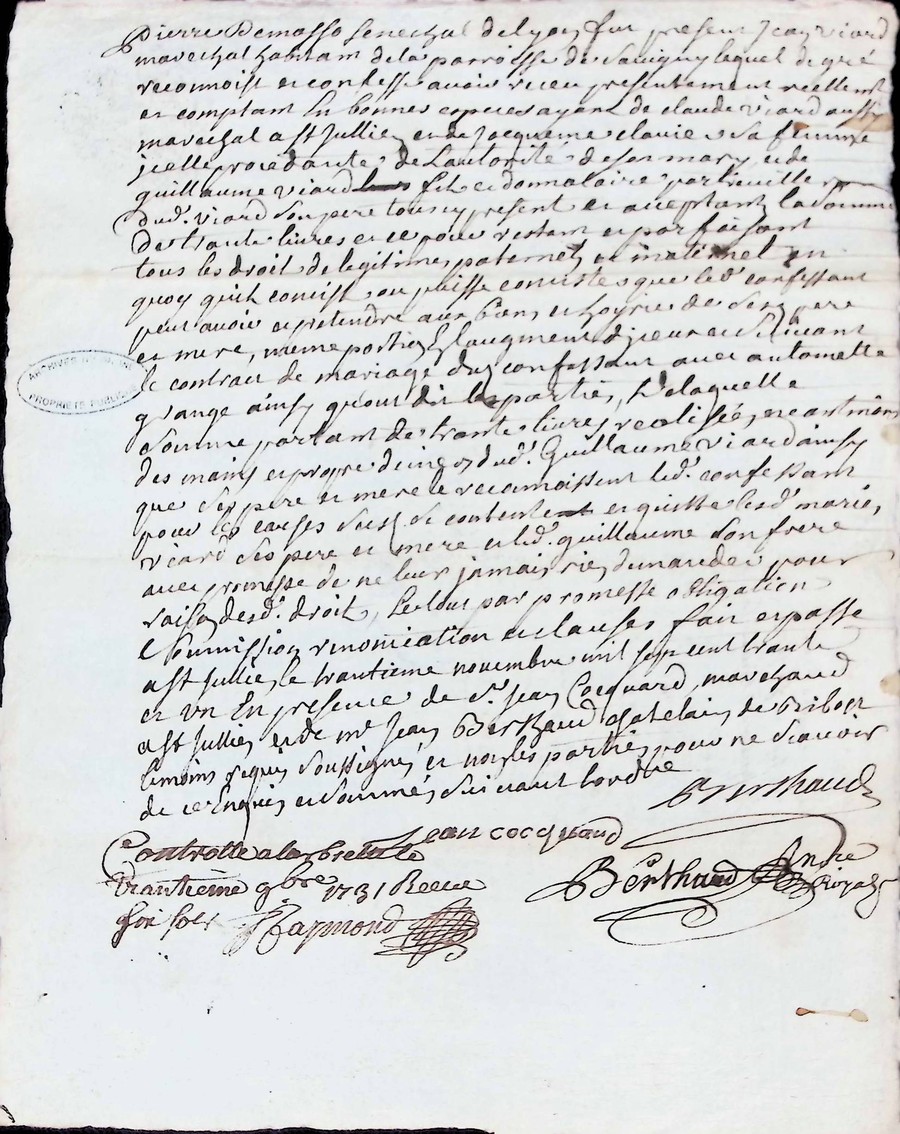 Pierre Demasso Senechal de lyon fut present Jean viard
marechal habitant de la parroisse de Savigny lequel de gré
reconnoist et confesse avoir receu presentement reellement
et comptant En bonnes especes ayant de claude viard aussy
marechal a st Jullien et de Jacqueme clavie sa femme
icelle procedante de Lautorité de son mary et de
guillaume viard fils et donnataire particullie
dud. viard son pere tous cy present et acceptant la somme
de trante livres et ce pour restant et parfaisant
tous les droit de legitime paternel et maternel en
quoy quils consist ou puisse consister que led. confessant
peut avoir et pretendre aux biens et hoyrie de Ses pere
et mere, meme portion et augment d'iceux et Suivant
le contract de mariage dud. confessant avec antoinette
grange ainsy qu'ont dit les parties, de laquelle
Somme partant de trante livres realisée, et
des mains et propre deniers dud. Guillaume viard ainsy
que Ses pere et mere le reconnoissent led. confessant
pour les causes Susd. Se contente et quitte lesd. mariés
viard Ses pere et mere et led. guillaume Son frere
avec promesse de ne leur jamais rien demander pour
raison desd. droit, Le tout par promesse obligation
Soumission renonciation et clauses fait et passé
a st Jullien le trantieme novembre mil sept cent trante
et un En presence de sr. Jean Cocquard, marchand
a st Jullien et de me Jean Berthaud Chatelain de Ribost
temoins requis soussignés et non les parties pour ne Scavoir
de ce Enquis et sommés Suivant lordre
Berthaud
Jean cocquard
Controllé a larbresle le
trantieme 9bre 1731 Receu
Berthaud Andre
Royal
Raymond
ARCHIVES DU RHONE
PROPRIETE PUBLIQUE